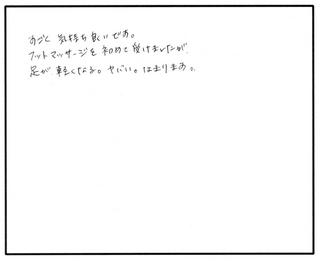 すごく気持ち良いです。
フットマッサージを初めて受けましたが
足が軽くなる。ヤバい。はまります。